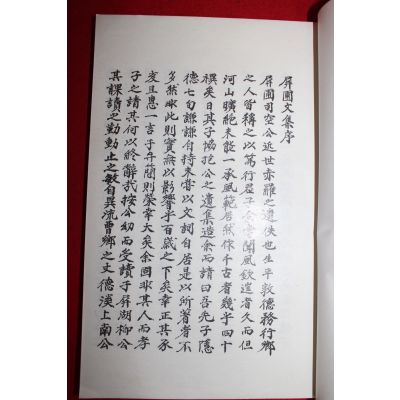 屛圃文集序
屛圃司空公近世赤羅之遺佚也生平敦德務行鄕
之人皆稱之以篤行君子余嘗聞風欽逞者久而但
河山曠絶未能一承風範居然作千古者幾乎四十
禩矣日其子協抱公之遺集造余而請曰吾先子隱
德七旬謙謙自持未嘗以文詞自居是以所著者不
多然此則實無以影響乎百歲之下矣幸正其豕
亥且惠一言于弁簡則榮幸大矣余固非其人而孝
子之請其何以終辭哉按公幼而受讀于屛湖柳公
其課讀之勤動止之敏自異流曹鄕之丈德渶上南公